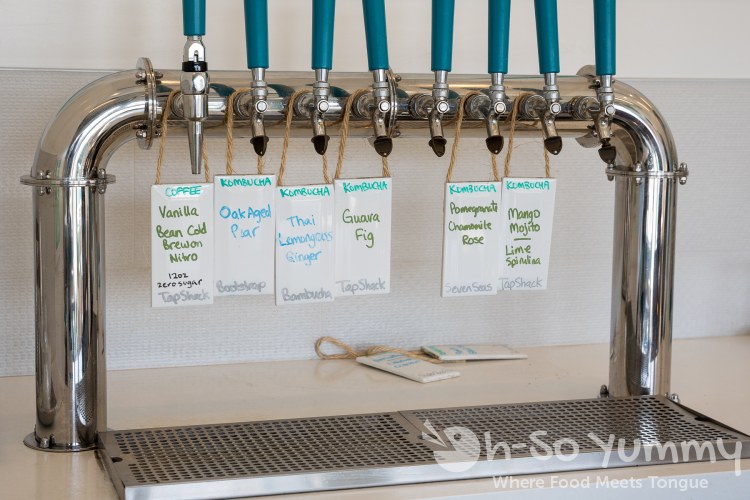 COFFEE
Vanilla
Bean Cold
Brew on
Nitro
12oz
zero sugar
TapShack
KOMBUCHA
Oak Aged
Pear
Bootstrap
KOMBUCHA
Thai
Lemongrass
Ginger
Bambucha
KOMBUCHA
Guava
Fig
TapShack
KOMBUCHA
Pomegranate
Chamomile
Rose
SevenSeas
KOMBUCHA
Mango
Mojito
Lime
Spirulina
TapShack
Oh-So Yummy
Where Food Meets Tongue